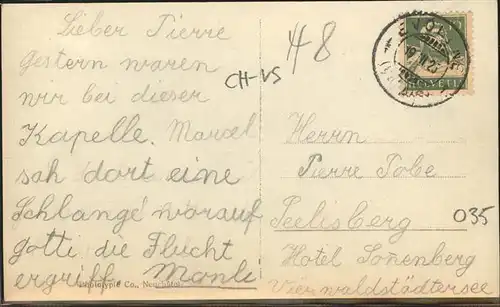 Lieber Pierre
gestern waren
wir bei dieser
Kapelle. Marcel
sah dort eine
Schlange worauf
Gotti die Flucht
ergriff
Phototypie Co., Neuchâtel
48
CH-VS
HELVETIA
Herrn
Pierre Tobe
Seelisberg
035
Hotel Sonenberg
Vierwaldstädtersee